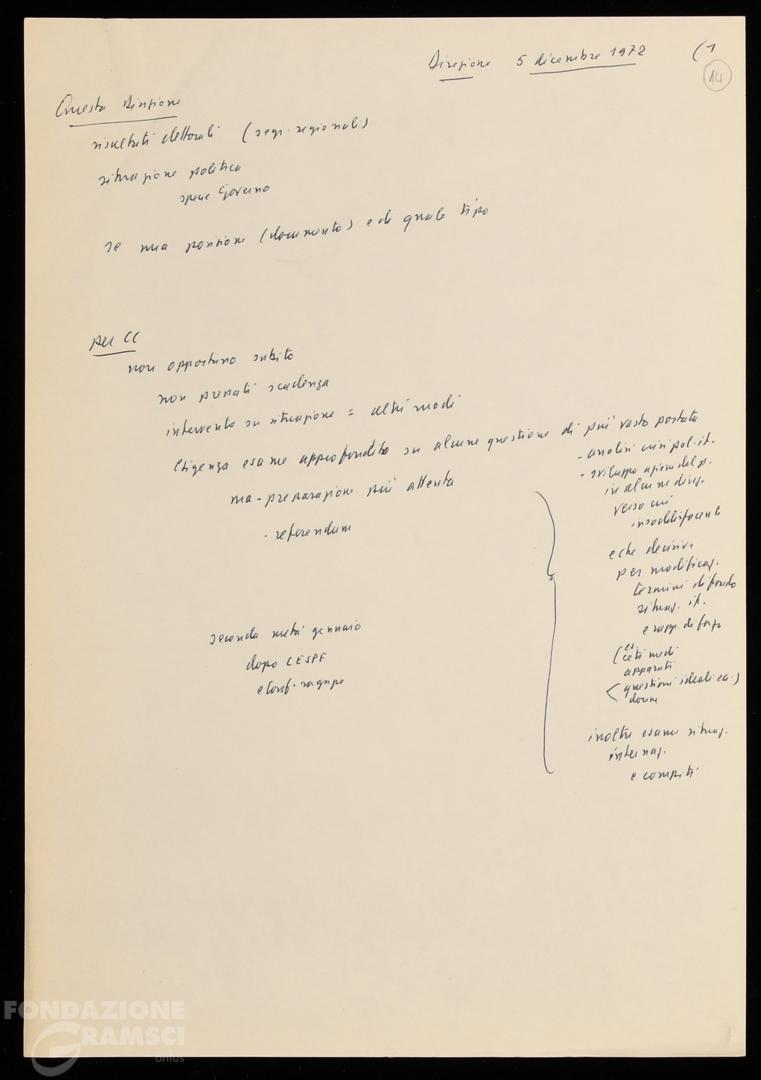 Direzione 5 dicembre 1972 (1
14
Questa Direzione
risultati elettorali (segr. regionali)
situazione politica
specie Governo
se una posizione (documento) e di quale tipo
per CC
non opportuno subito
non pressati scadenza
intervento su situazione = altri modi
Esigenza esame approfondito su alcune questione di più vasta portata
ma - preparazione più attenta
- referendum
seconda metà gennaio
dopo CESPE
e conf.
- analisi crisi pol. it.
- sviluppo azione del p.
in alcune direz.
verso cui
insoddisfacente
e che decisiva
per modificaz.
termini di fondo
situaz. it.
e rapp. di forza
(es
ceti medi
apparati
questioni ideali ecc)
donne
inoltre esame situaz.
internaz.
e compiti
FONDAZIONE
GRAMSCI
onlus